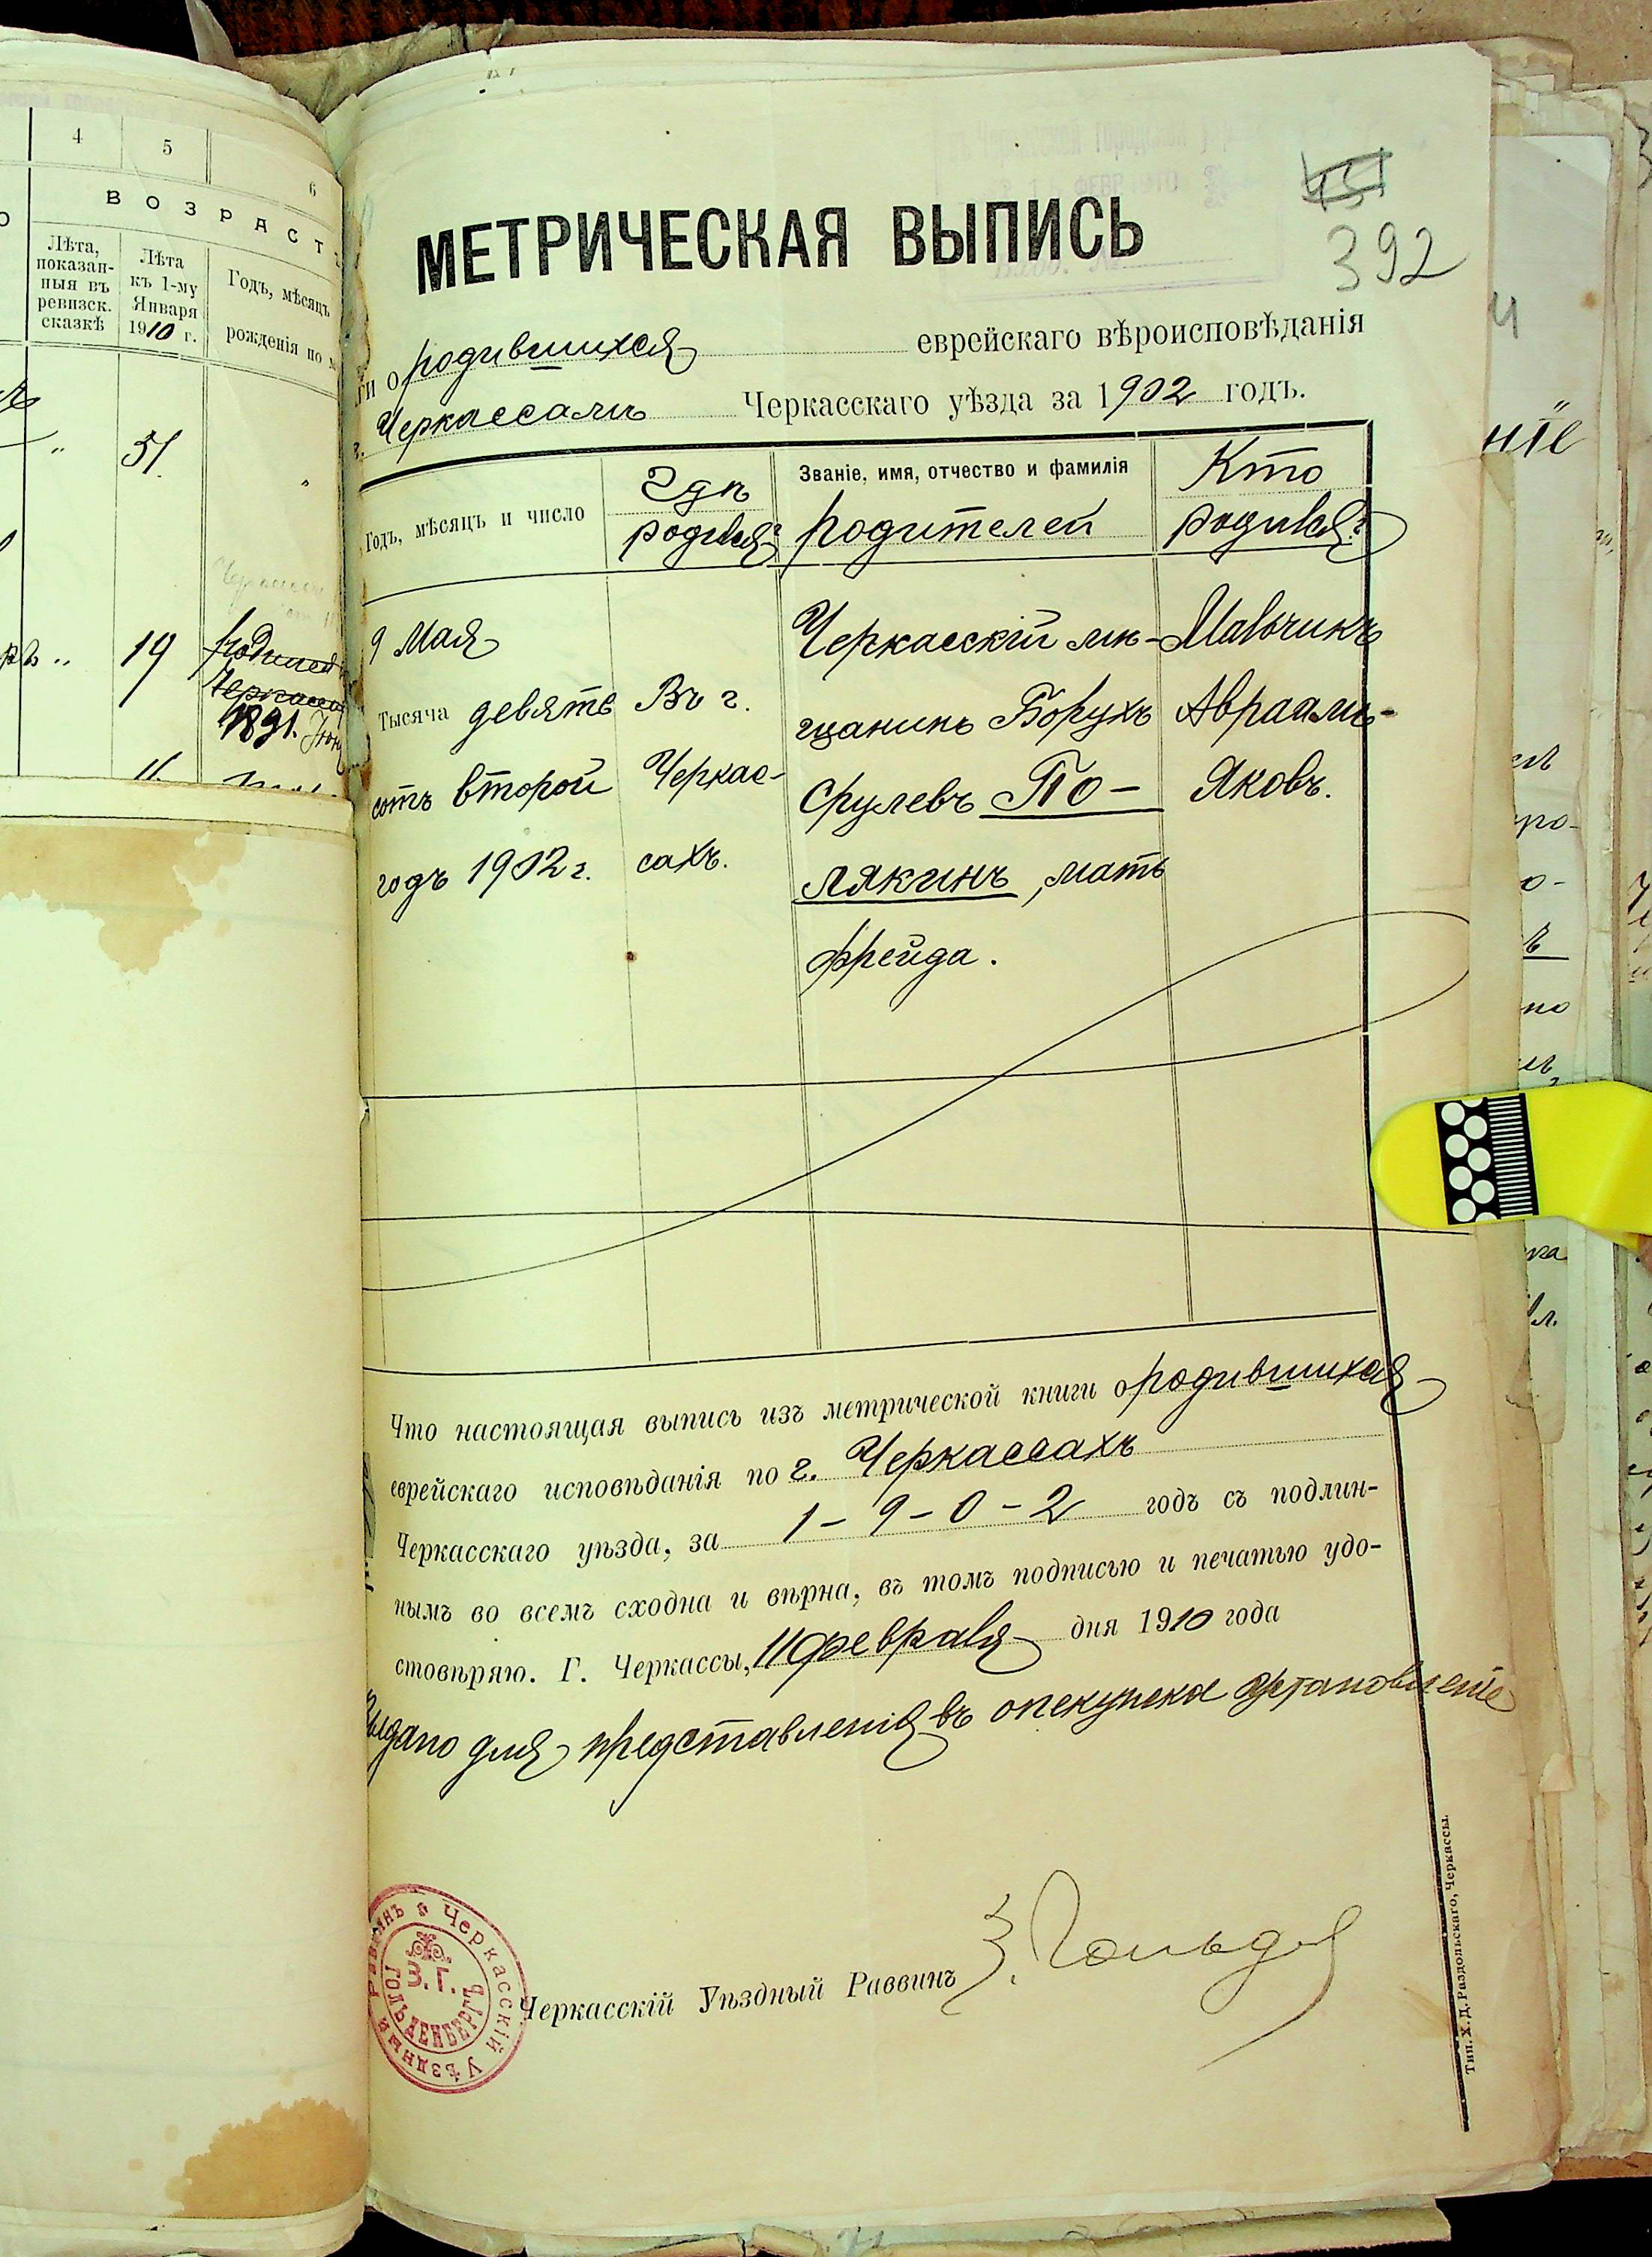 4
5
6
ВОЗРАСТ
Лѣта, показан-
ныя въ
ревизск.
сказкѣ
Лѣта
къ 1-му
Января
1910 г.
Годъ, мѣсяцъ
рожденія по
51.
19
1891.
11.
392
МЕТРИЧЕСКАЯ ВЫПИСЬ
ги о родившихся еврейскаго вѣроисповѣданія
г. Черкассамъ Черкасскаго уѣзда за 1902 годъ.
Годъ, мѣсяцъ и число
Гдѣ
родился?
Званіе, имя, отчество и фамилія
родителей
Кто
родился?
9 Мая
Тысяча девять
сотъ второй
годъ 1902 г.
Въ г.
Черкас-
сахъ.
Черкасскій мѣ-
щанинъ Борухъ
Срулевъ По-
лякинъ, мать
Фрейда.
Мальчикъ
Авраамъ-
Яковъ.
Что настоящая выпись изъ метрической книги о родившихся
еврейскаго исповѣданія по г. Черкассахъ
Черкасскаго уѣзда, за 1-9-0-2 годъ съ подлин-
нымъ во всемъ сходна и вѣрна, въ томъ подписью и печатью удо-
стовѣряю. Г. Черкассы, 11 февраля дня 1910 года
Выдано для представленія въ опекунск
Черкасскій Уѣздный Раввинъ
Черкасскій Уѣздный Раввинъ
З. Г.
Тип. Х. Д. Раздольскаго, Черкассы.